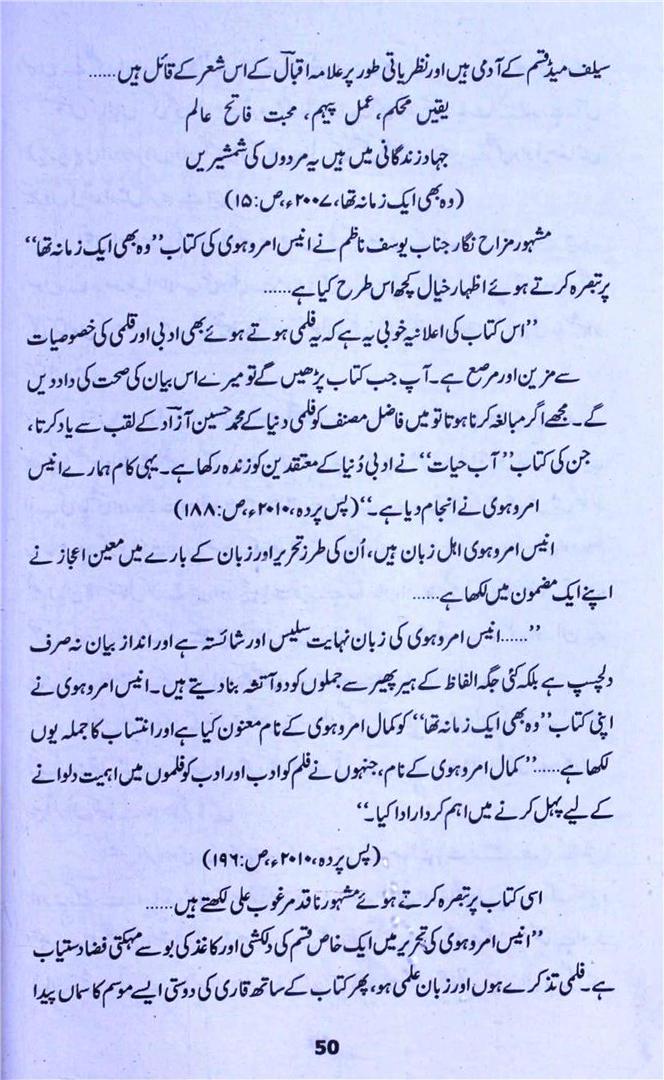 سیلف میڈ قسم کے آدمی ہیں اور نظریاتی طور پر علامہ اقبالؔ کے اس شعر کے قائل ہیں……
یقیں محکم، عمل پیہم، محبت فاتح عالم
جہادِ زندگانی میں ہیں یہ مردوں کی شمشیریں
(وہ بھی ایک زمانہ تھا، ۲۰۰۷ء، ص:۱۵)
مشہور مزاح نگار جناب یوسف ناظم نے انیس امروہوی کی کتاب ”وہ بھی ایک زمانہ تھا“
پر تبصرہ کرتے ہوئے اظہار خیال کچھ اس طرح کیا ہے……
”اس کتاب کی اعلانیہ خوبی یہ ہے کہ یہ فلمی ہوتے ہوئے بھی ادبی اور قلمی کی خصوصیات
سے مزین اور مرصع ہے۔ آپ جب کتاب پڑھیں گے تو میرے اس بیان کی صحت کی داد دیں
گے۔ مجھے اگر مبالغہ کرنا ہوتا تو میں فاضل مصنف کو فلمی دنیا کے محمد حسین آزادؔ کے لقب سے یاد کرتا،
جن کی کتاب ”آب حیات“ نے ادبی دُنیا کے معتقدین کو زندہ رکھا ہے۔ یہی کام ہمارے انیس
امروہوی نے انجام دیا ہے۔“ (پس پردہ، ۲۰۱۰ء، ص:۱۸۸)
انیس امروہوی اہل زبان ہیں، اُن کی طرز تحریر اور زبان کے بارے میں معین اعجاز نے
اپنے ایک مضمون میں لکھا ہے……
”……انیس امروہوی کی زبان نہایت سلیس اور شائستہ ہے اور انداز بیان نہ صرف
دلچسپ ہے بلکہ کئی جگہ الفاظ کے ہیر پھیر سے جملوں کو دو آتشہ بنا دیتے ہیں۔ انیس امروہوی نے
اپنی کتاب ”وہ بھی ایک زمانہ تھا“ کو کمال امروہوی کے نام معنون کیا ہے اور انتساب کا جملہ یوں
لکھا ہے……”کمال امروہوی کے نام، جنہوں نے فلم کو ادب اور ادب کو فلموں میں اہمیت دلوانے
کے لیے پہل کرنے میں اہم کردار ادا کیا۔“
(پس پردہ، ۲۰۱۰ء، ص:۱۹۶)
اسی کتاب پر تبصرہ کرتے ہوئے مشہور ناقد مرغوب علی لکھتے ہیں……
”انیس امروہوی کی تحریر میں ایک خاص قسم کی دلکشی اور کاغذ کی بو سے مہکتی فضا دستیاب
ہے۔ فلمی تذکرے ہوں اور زبان علمی ہو، پھر کتاب کے ساتھ قاری کی دوستی ایسے موسم کا سماں پیدا
50